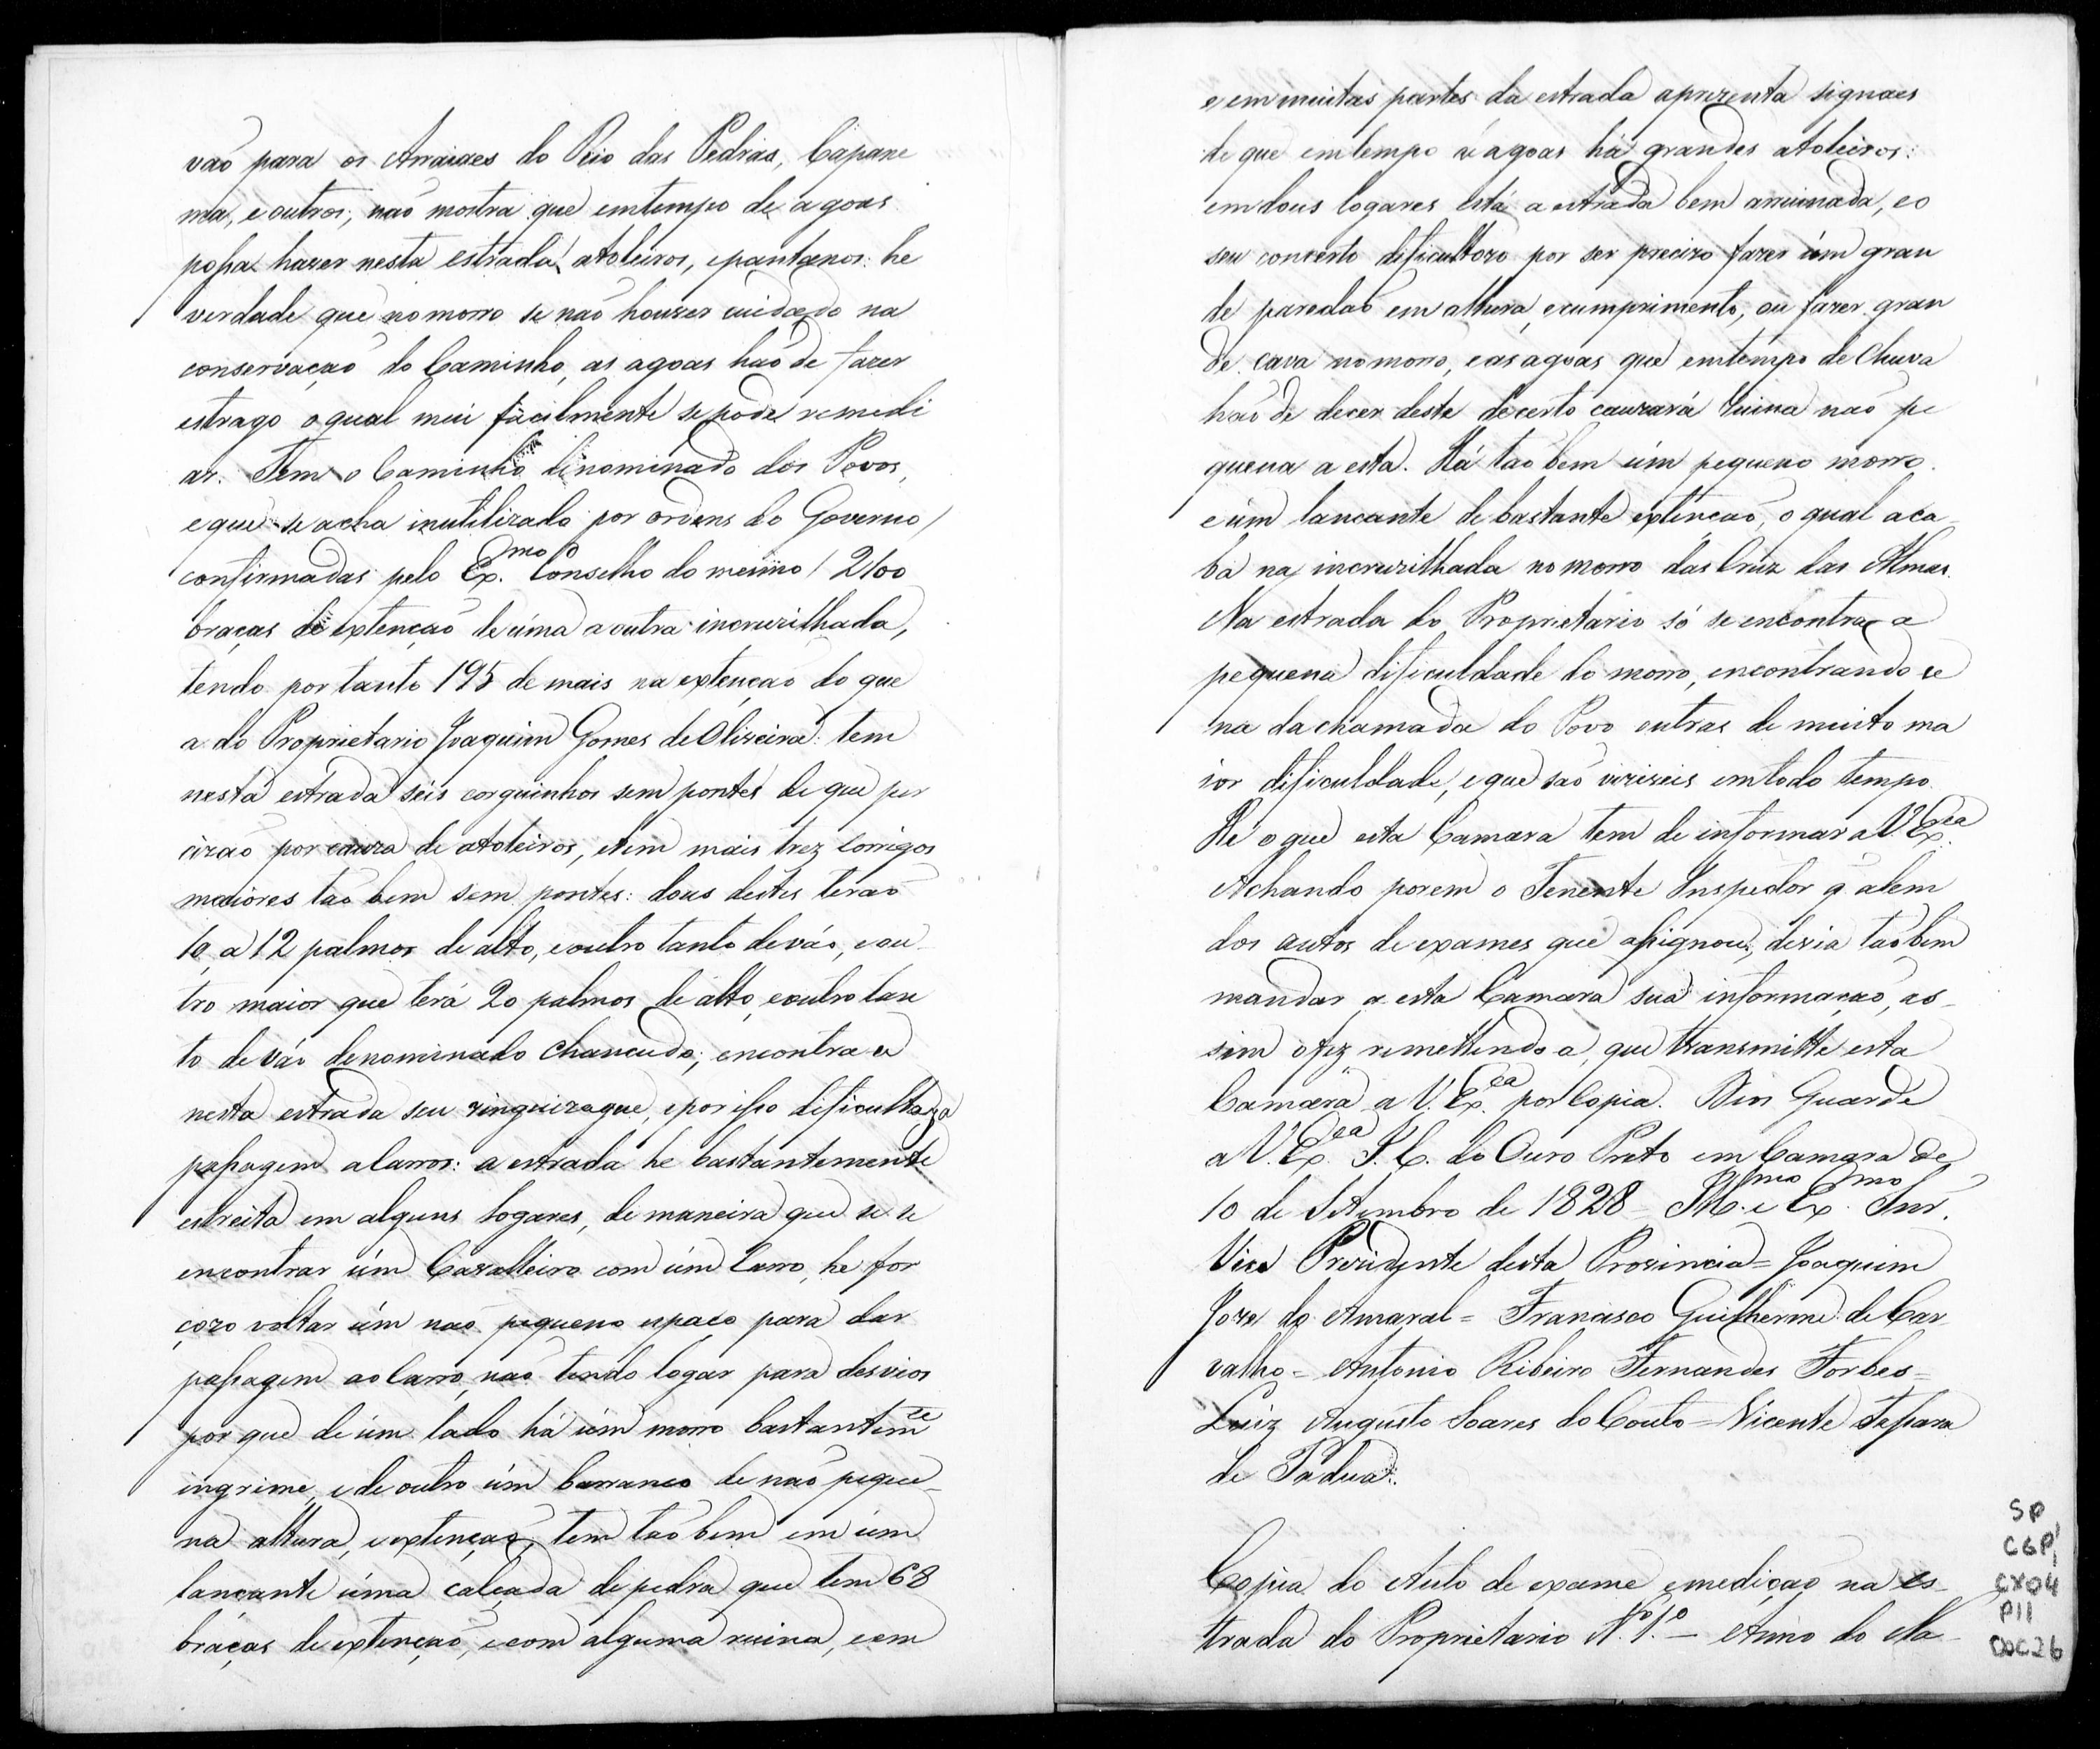 vaõ para os Arraiaes do Rio das Pedras, Capane
ma, e outros; naõ mostra que emtempo de agoas
possa haver nesta estrada atoleiros, epantanos: he
verdade que nomorro se naõ houver cuidado na
conservaçaõ do Caminho, as agoas haõ de fazer
estrago oqual mui facilmente sepode remedi
ar. Tem o Caminho denominado dos Povos,
eque se acha inutilizado por ordens do Governo /
confirmadas pelo Ex.mo Conselho do mesmo / 2100
braças de extençaõ de úma a outra incruzilhada,
tendo portanto 195 de mais na extençaõ do que
a do Proprietario Joaquim Gomes de Oliveira: tem
nesta estrada seis corguinhos sem pontes de que per
cizaõ por cauza de atoleiros, etem mais trez Corrigos
maiores taõ bem sem pontes: dous destes teraõ
10, a 12 palmos de alto, eoutro tanto de váo, eou
tro maior que terá 20 palmos de alto, eoutro tan
to de váo denominado Chancudo; encontra se
nesta estrada seu zinguezague, eporisso dificultoza
passagem a Carros: a estrada he bastantemente
estreita em alguns Logares, de maneira que se se
encontrar úm Cavalleiro com úm Carro, he for
çozo voltar úm naõ pequeno espaço para dar
passagem ao Carro, naõ tendo logar para desvios
por que de úm lado há úm morro bastantemte
ingrime, e de outro úm barranco de naõ peque-
na altura, eextençaõ; tem taõ bem em úm
lançante úma calçada de pedra que tem 68
braças de extençaõ, ecom alguma ruina, eem
e em muitas partes da estrada aprezenta signaes
de que emtempo de agoas há grandes atoleiros:
emdous logares está a estrada bem arruinada, eo
seu concerto dificultozo por ser precizo fazer úm gran
de paredaõ em altura, ecumprimento, ou fazer gran
de cava nomorro, eas agoas que emtempo de Chuva
haõ de decer deste decerto cauzará ruina naõ pe
quena a esta. Há taõ bem úm pequeno morro
e úm lancante de bastante extençaõ, o qual aca
ba na incruzilhada no morro das Cruz das Almas.
Na estrada do Proprietario só se encontra a
pequena dificuldade do morro, encontrando se
na da chamada do Povo outras de muito ma
ior dificuldade, eque saõ viziveis emtodo tempo.
He o que esta Camara tem de informar a V. Ex.ca
Achando porem o Tenente Inspector q. alem
dos autos de exames que assignou, devia taõ bem
mandar a esta Camara sua informaçaõ, as-
sim ofez remettendo a, que transmitte esta
Camara a V. Ex.ca por Copia. Deos Guarde
a V. Ex.ca I. C. do Ouro Preto em Camara de
10 de Setembro de 1828 = Ill.mo e Ex.mo Snr.
Vice Prezidente desta Provincia = Joaquim
Joze do Amaral = Francisco Guilherme de Car
valho = Antonio Ribeiro Fernandes Forbes =
Luiz Augusto Soares do Couto = Vicente
de Padua.
Copia do Auto de exame, emediçaõ na es-
trada do Proprietario N.º 1.º — Anno do Na-
SP
CGP1
CX04
P11
DOC26